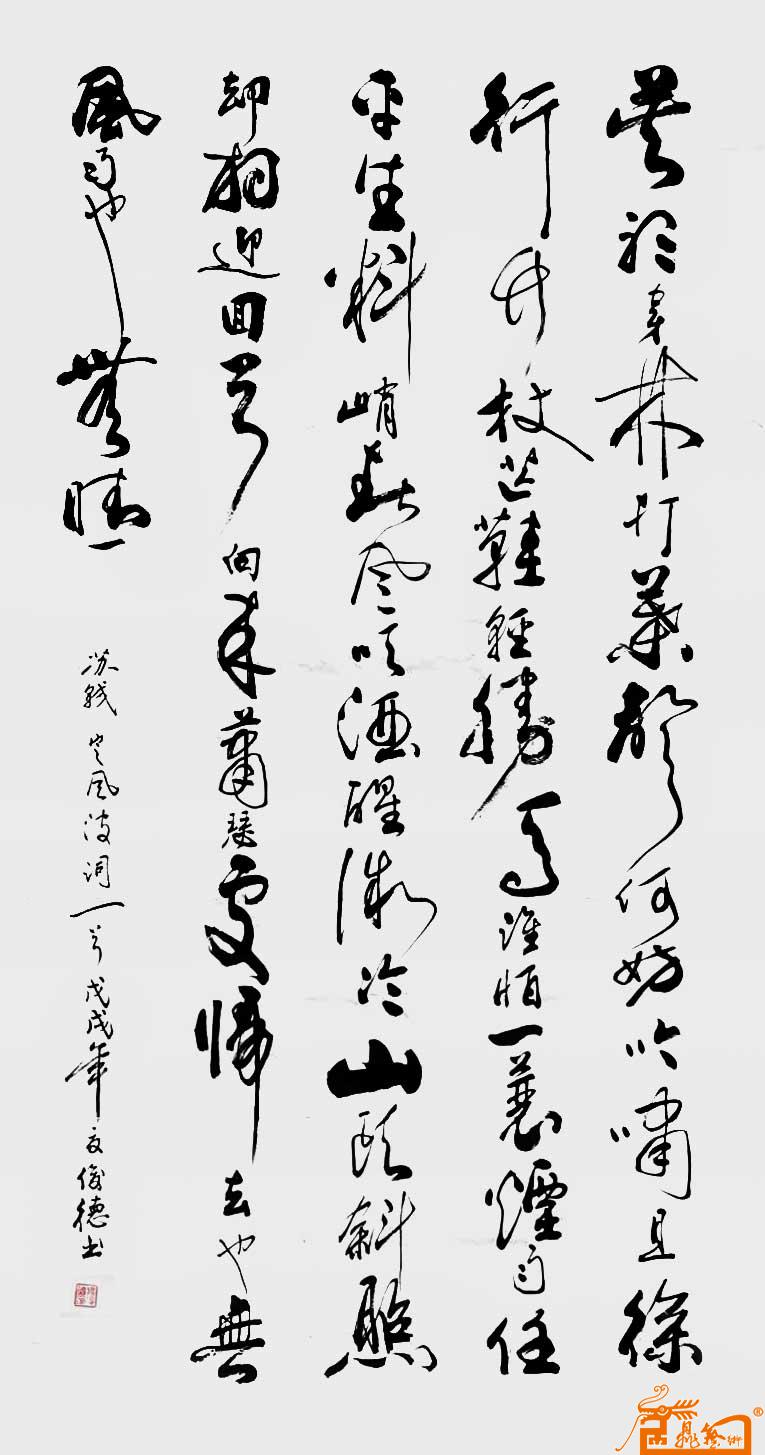 莫聽穿林打葉聲何妨吟嘯且徐
行竹杖芒鞋輕勝馬誰怕一蓑煙雨任
平生料峭春风吹酒醒微冷山頭斜照
却相迎回首向来蕭瑟處歸去也無
風雨也無晴
苏軾定风波词一首戊戌年夏俊德书